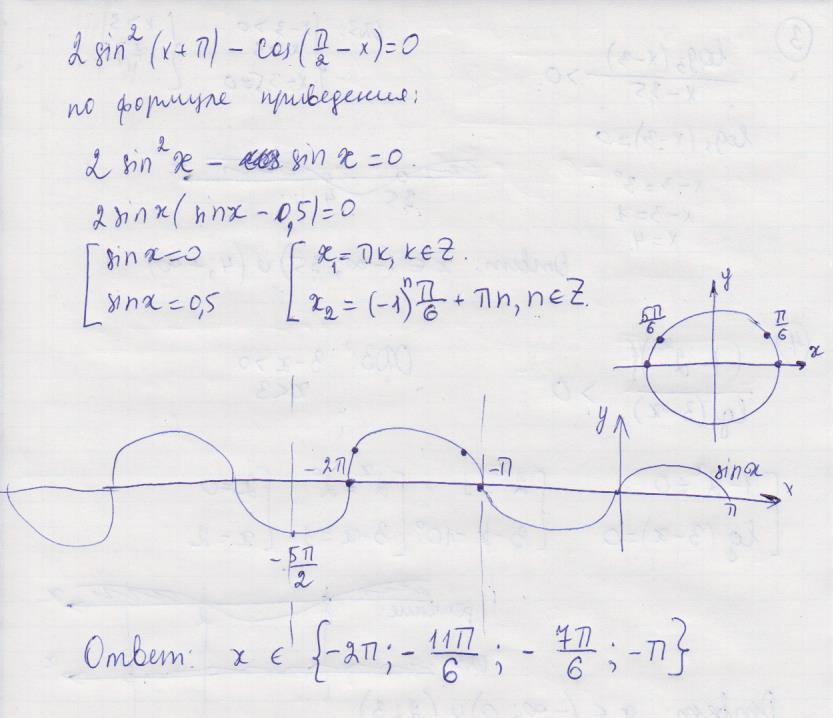 2 sin² (x + π) − cos(π/2 − x) = 0
по формуле приведения:
2 sin² x − sin x = 0.
2 sin x ( sin x − 0,5) = 0
[ sin x = 0 [ x₁ = πk, k ∈ Z.
[ sin x = 0,5 [ x₂ = (−1)ⁿ π/6 + πn, n ∈ Z.
y
5π/6 π/6
x
y
−2π −π sin x
x
π
−5π/2
Ответ: x ∈ {−2π; −11π/6; −7π/6; −π}